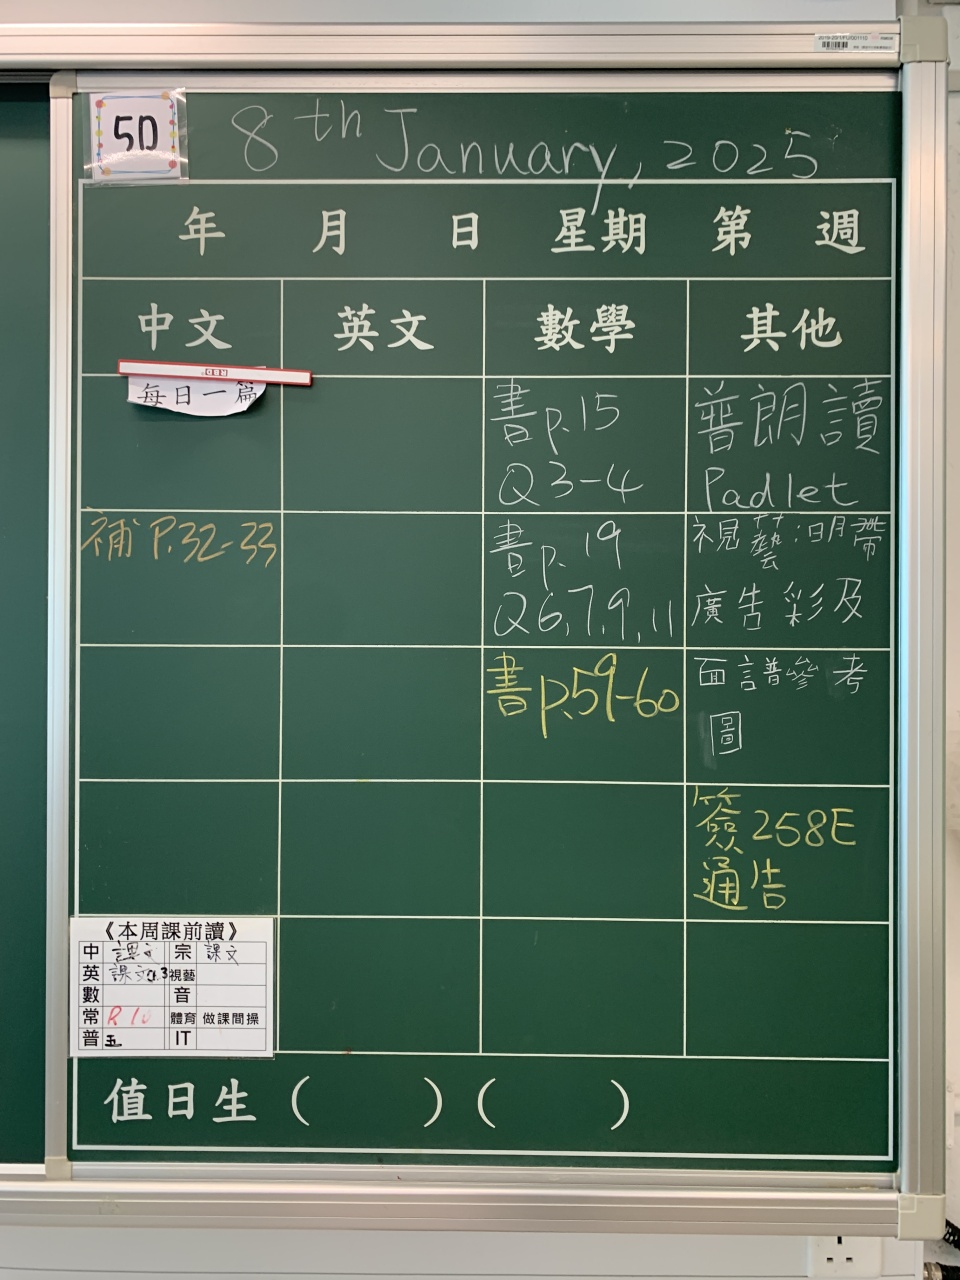 5D
8th January, 2025
年 月 日 星期 第 週
中文 英文 數學 其他
每日一篇
書p.15
Q3-4
普朗讀
Padlet
補 P.32-33
書p.19
Q6,7,9,11
視藝:明帶
廣告彩及
書p.59-60
面譜參考
圖
簽258E
通告
《本周課前讀》
中 課文 宗 課文
英 課文 視藝
數 音
常 體育 做課間操
普 五 IT
值日生( )( )